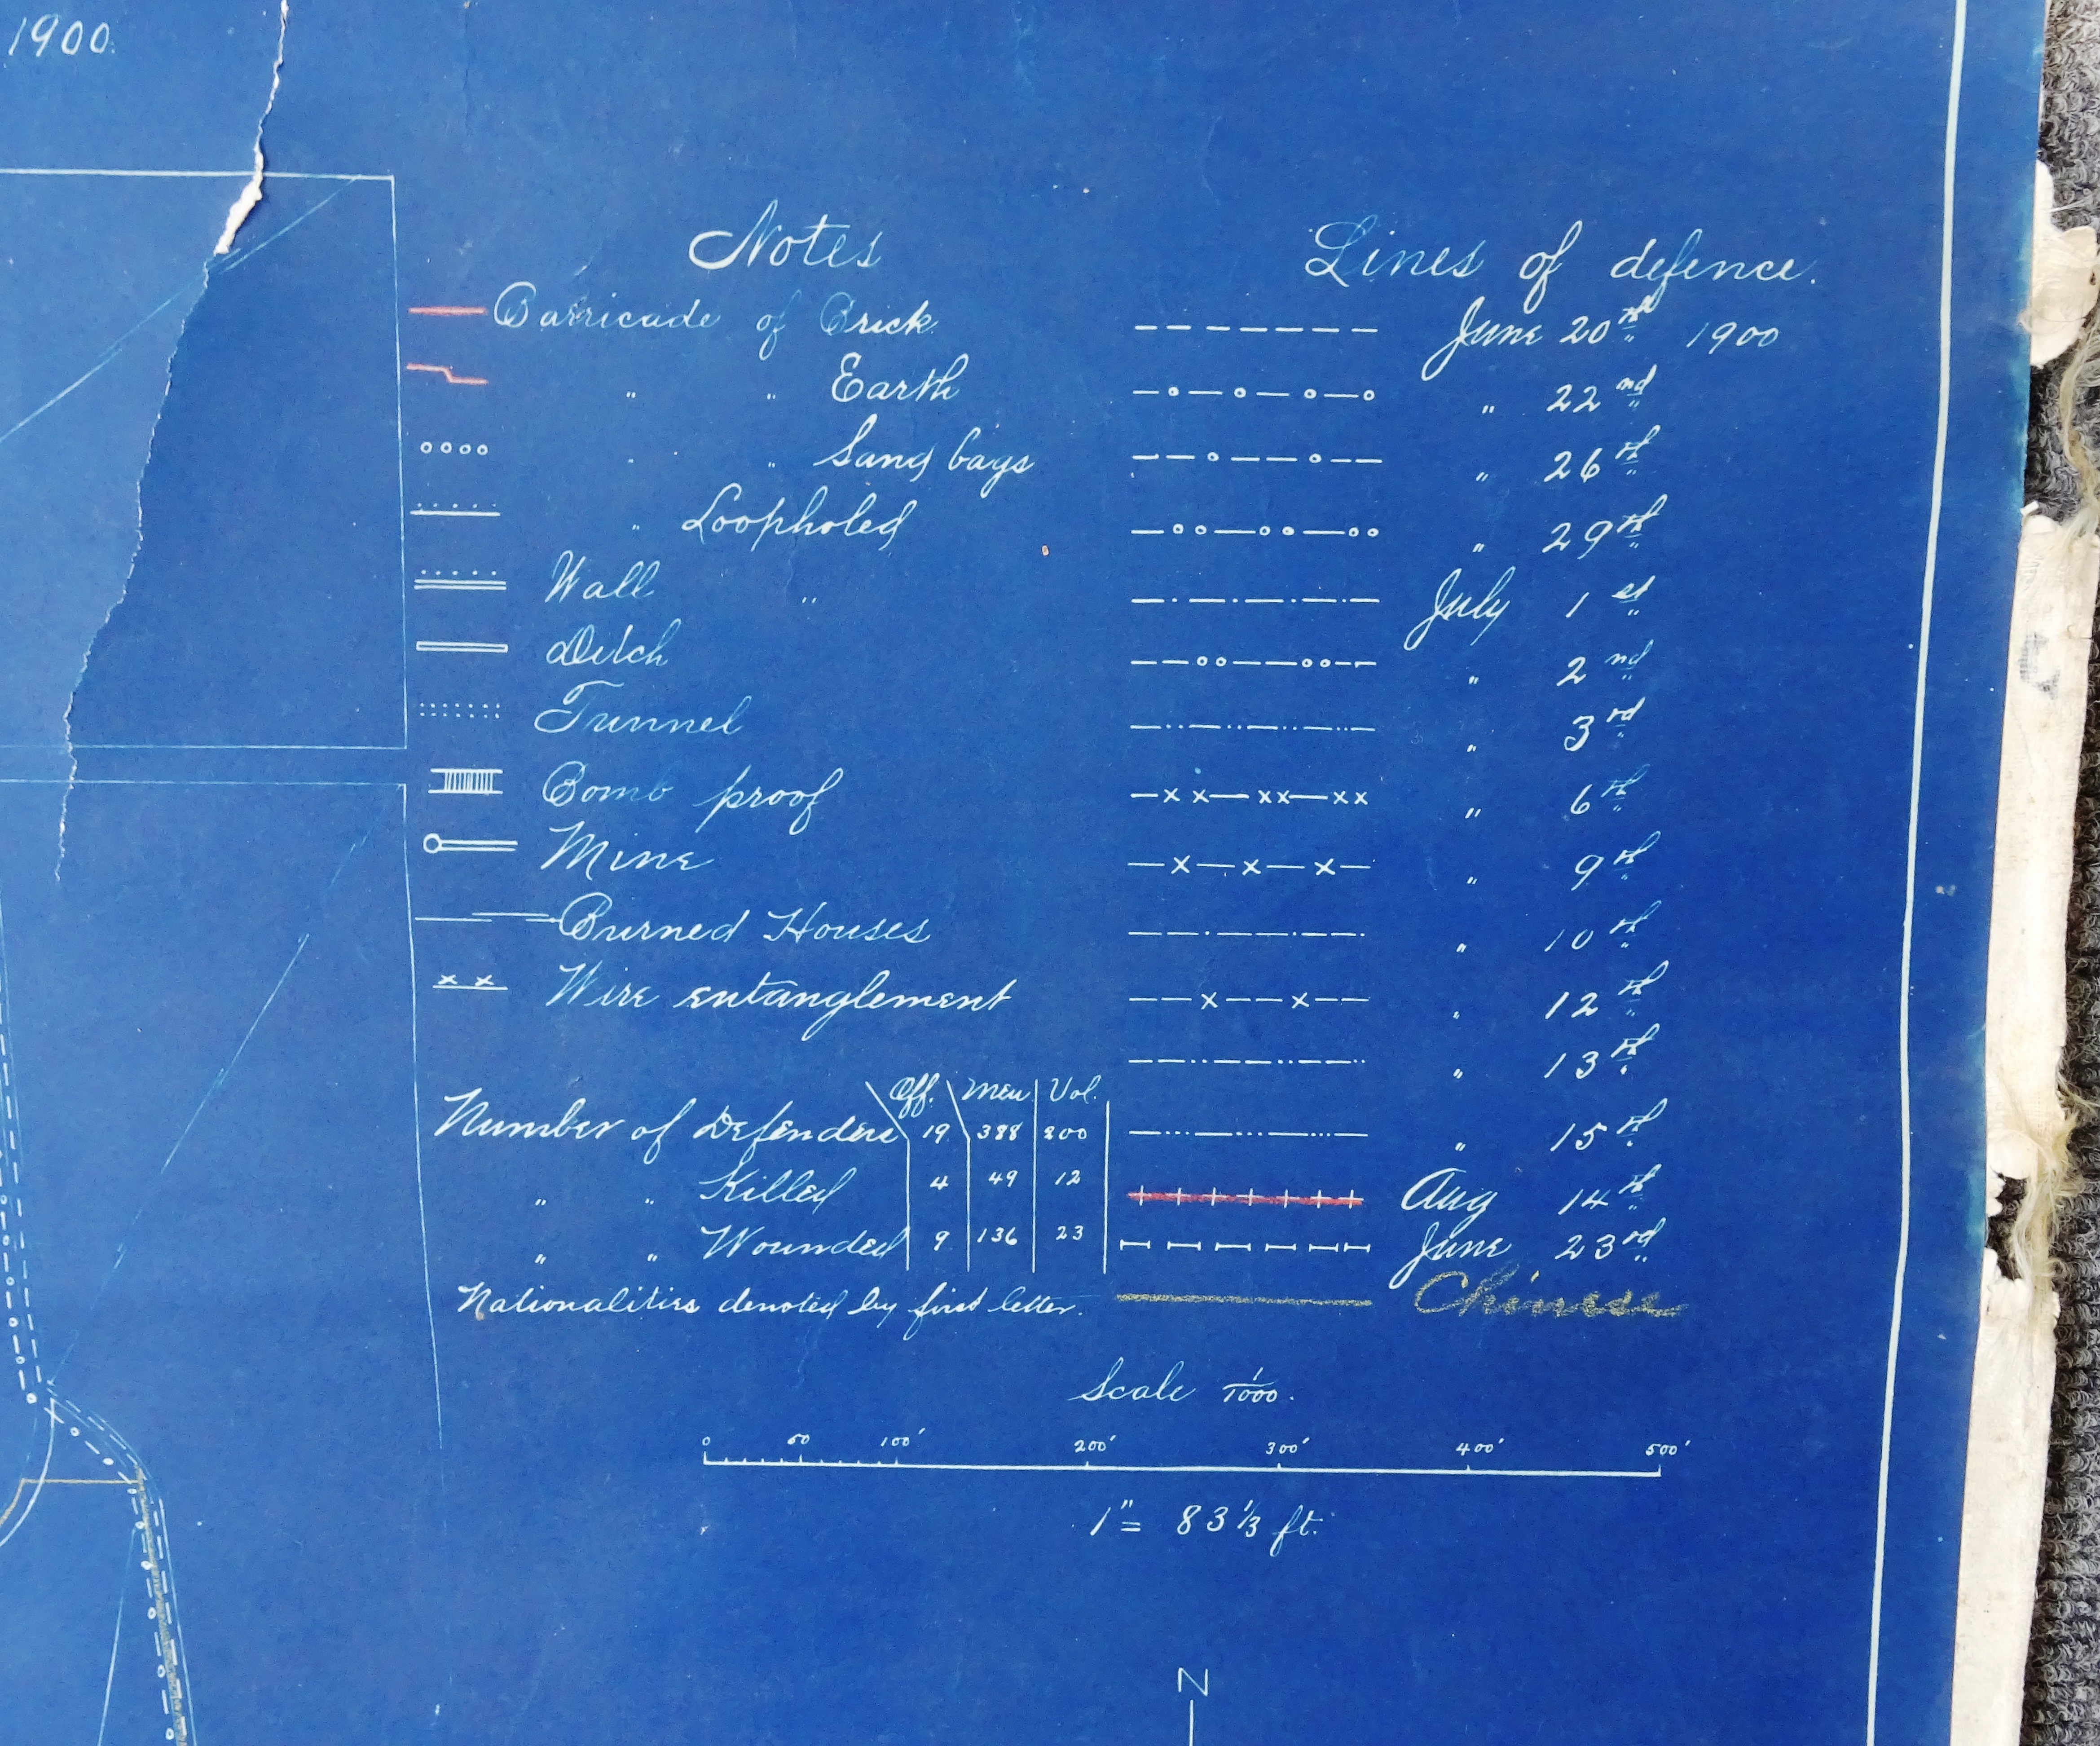 1900.
Notes
Barricade of Brick
" " Earth
" " Sand bags
" Loopholed
Wall "
Ditch
Tunnel
Bomb proof
Mine
Burned Houses
Wire entanglement
Off. Men Vol.
Number of Defenders 19 388 200
" " Killed 4 49 12
" " Wounded 9 136 23
Nationalities denoted by first letter.
Lines of defence.
June 20th 1900
" 22nd
" 26th
" 29th
July 1st
" 2nd
" 3rd
" 6th
" 9th
" 10th
" 12th
" 13th
" 15th
Aug 14th
June 23rd
Chinese
Scale 1/1000.
0 50 100' 200' 300' 400' 500'
1" = 83 1/3 ft.
N